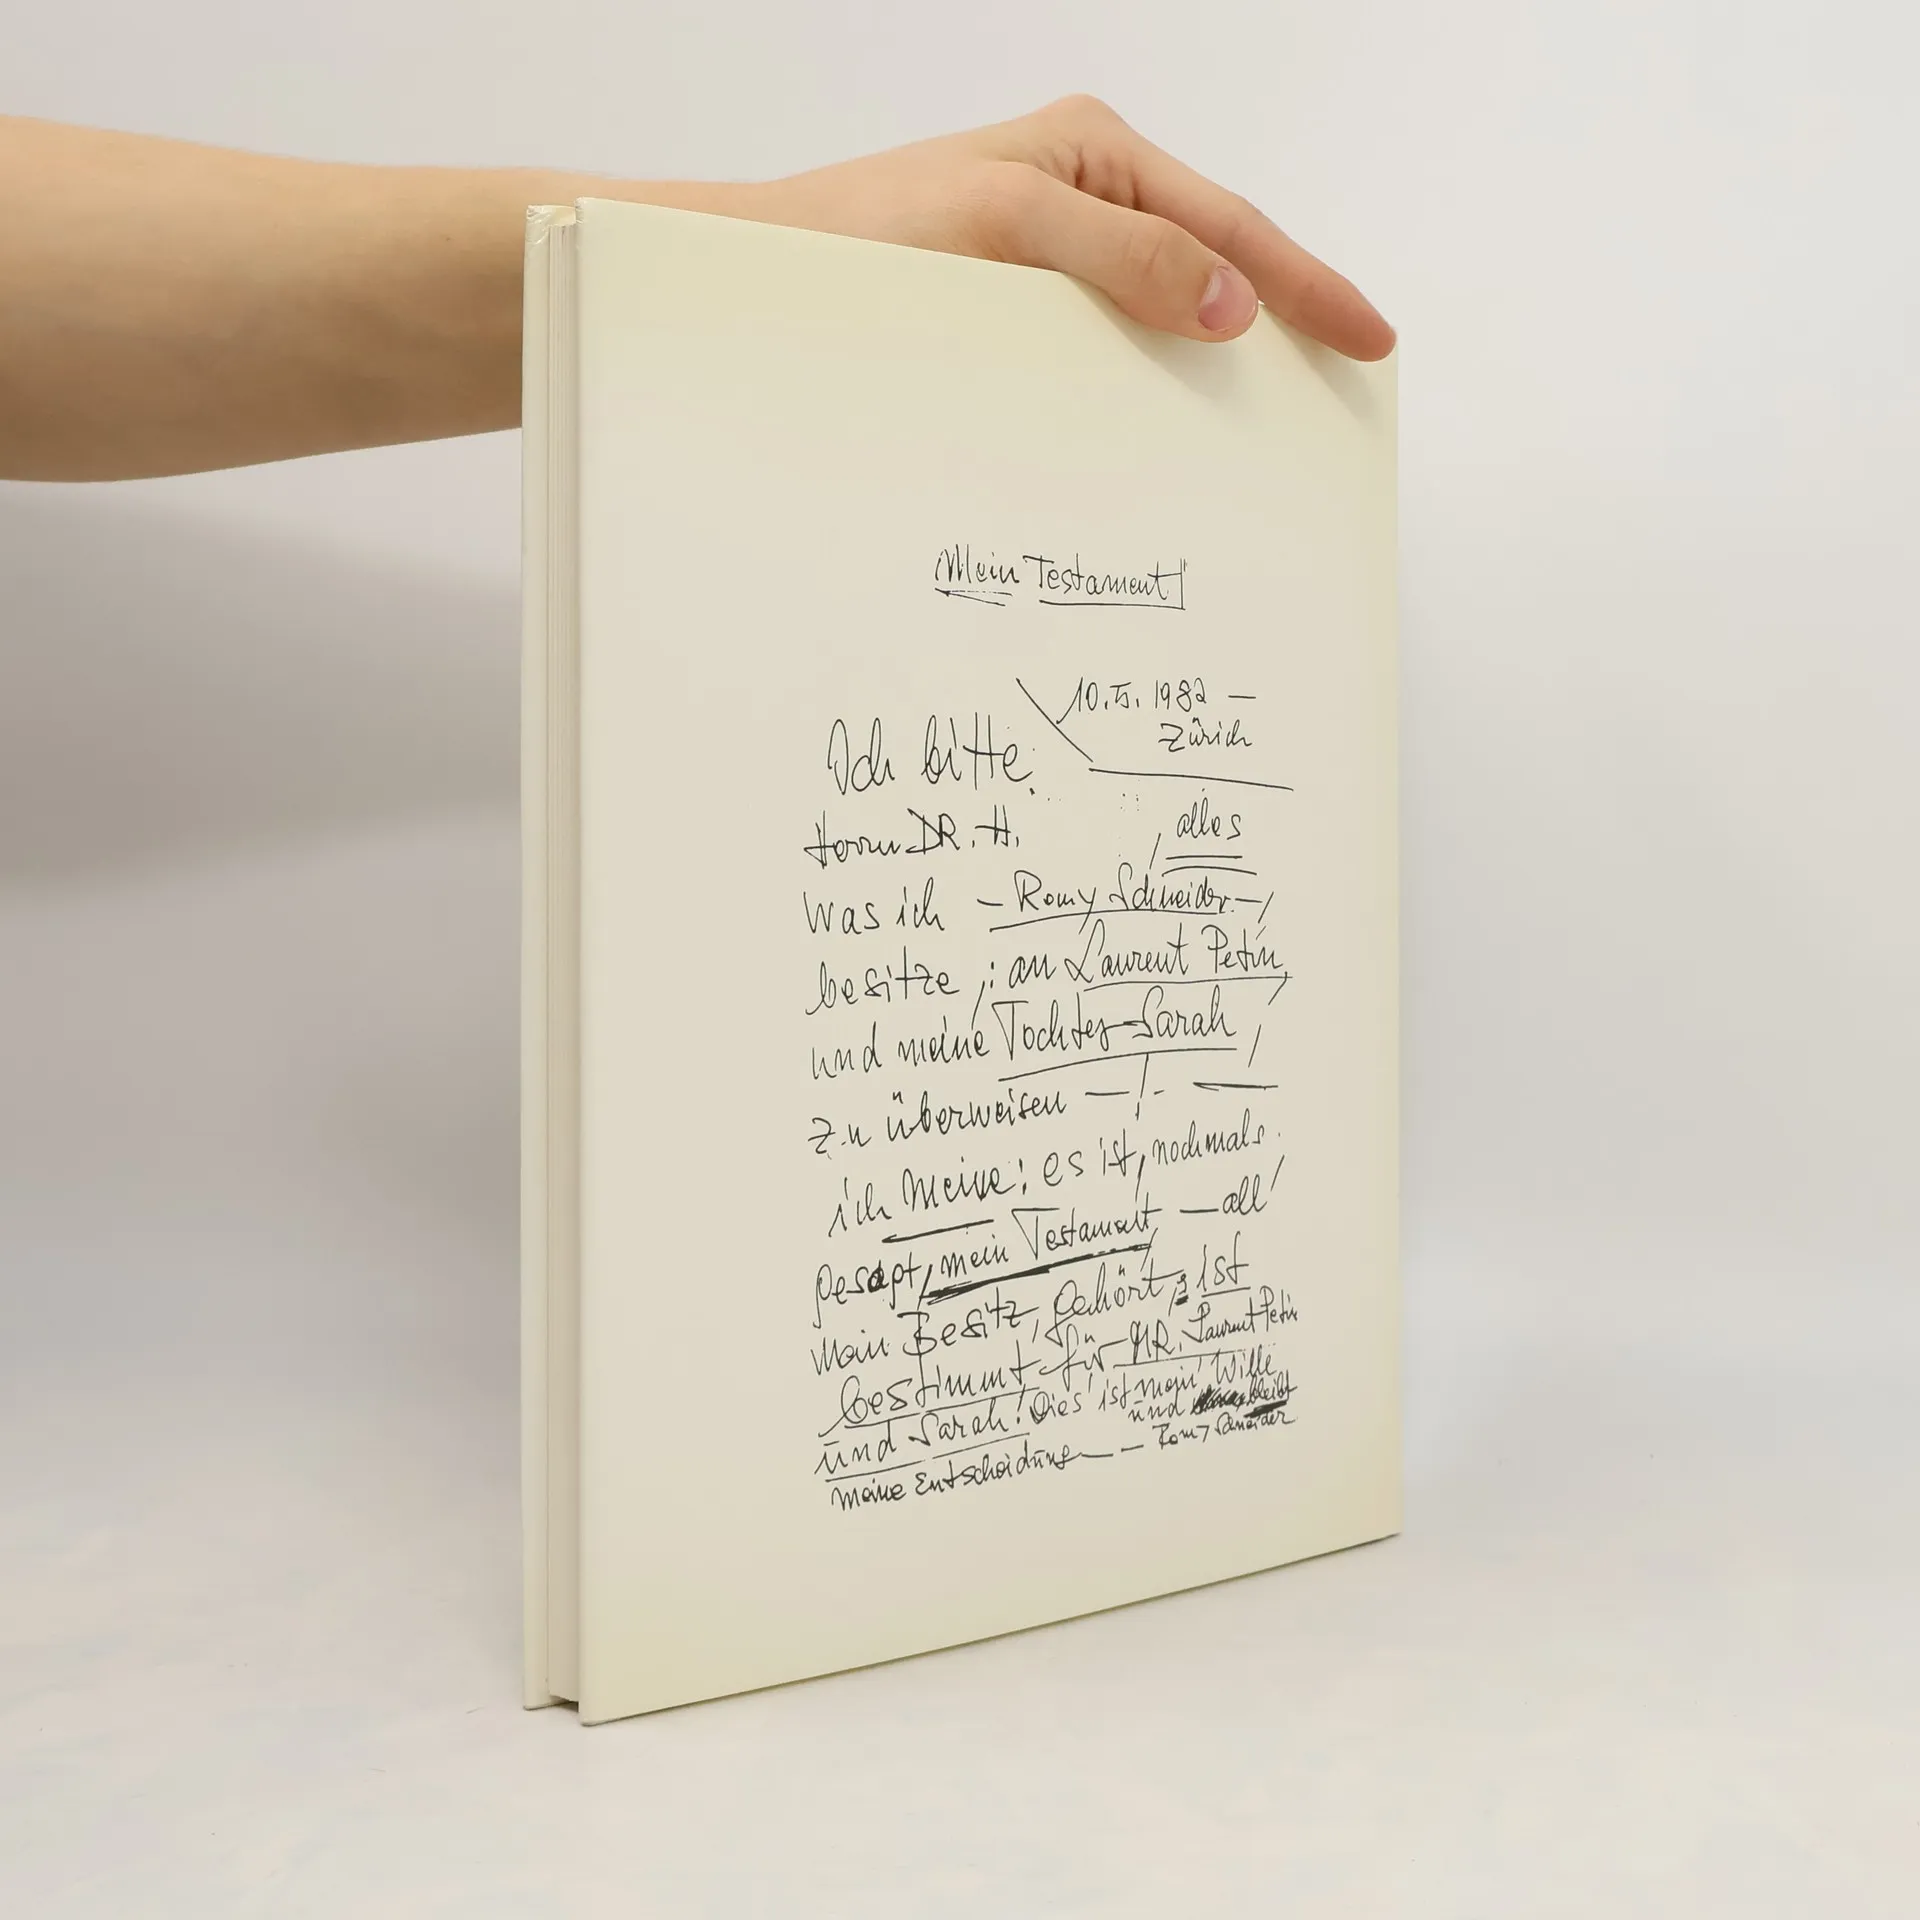 Mein Testament
10.5.1982 —
Zürich
Ich bitte
Herrn DR. H.
, alles
was ich – Romy Schneider. –,
besitze ,: an Laurent Petin,
und meine Tochter Sarah
zu überweisen —!- —
ich meine: es ist, nochmals
gesagt, mein Testament — all'
mein Besitz, gehört, ist
bestimmt für MR. Laurent Petin
und Sarah! Dies' ist mein Wille
und bleibt
meine Entscheidung — – Romy Schneider